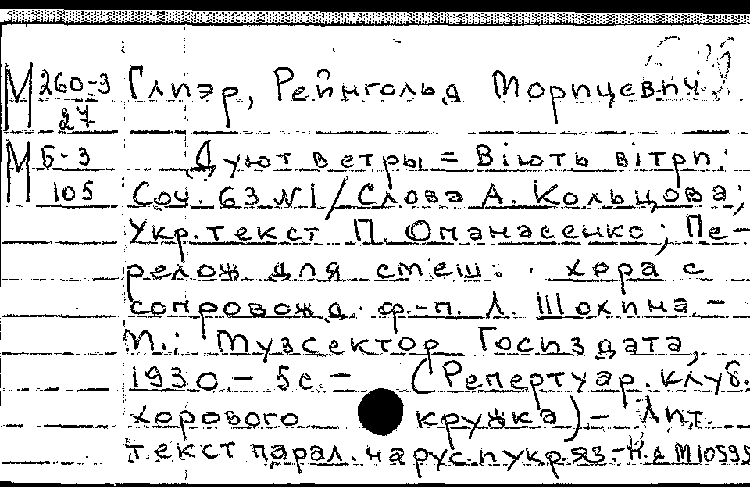 М 260-3 Глиэр, Рейнгольд Морицевич.
27
М Б-3 Дуют ветры = Віють вітри:
105 Соч. 63 №1 / Слова А. Кольцова;
Укр. текст П. Опанасенко; Пе-
релож для смеш. хора с
сопровожд. ф-п. Л. Шохина. -
М.: Музсектор Госиздата,
1930 - 5с. - (Репертуар. клуб.
хорового кружка) - Лит.
текст парал. на рус. и укр. яз. - Н.д. М10595